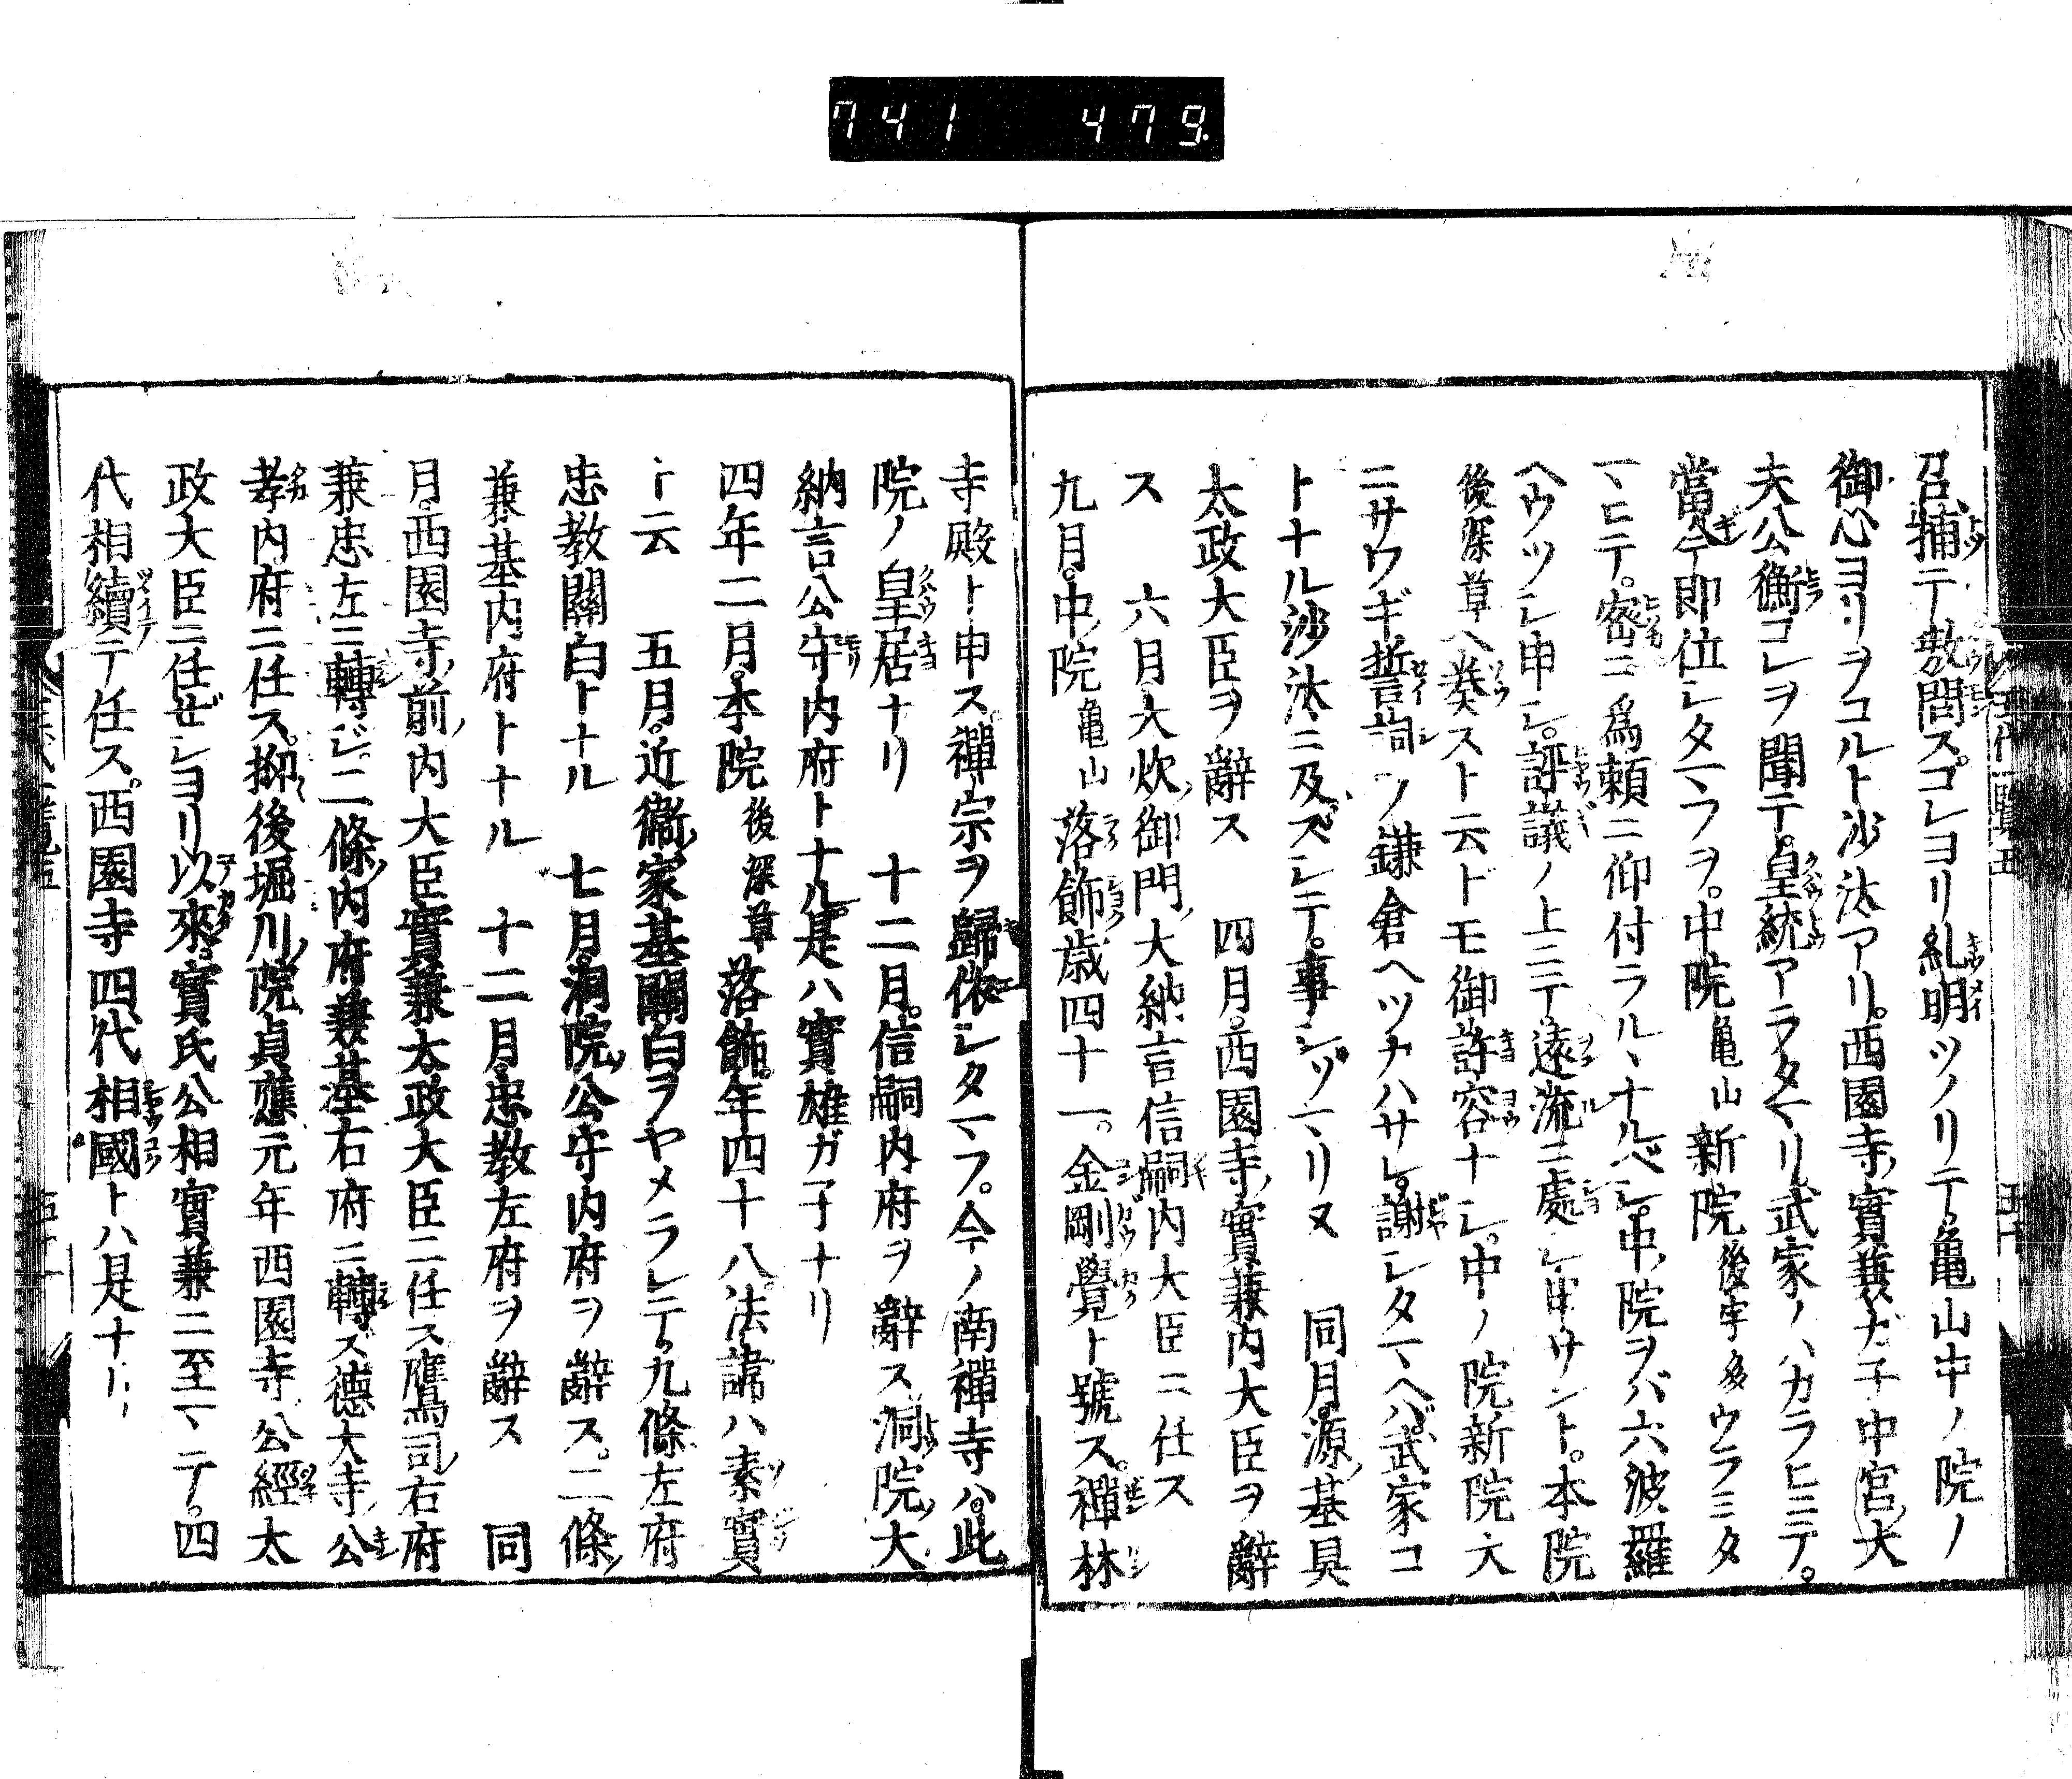 741 479
召捕テ敖問スコレヨリ糺明ツノリテ。亀山中ノ院ノ
御心ヨリヲコルト沙汰アリ。西園寺實兼ガ子中宮大
夫公衡コレヲ聞テ。皇統アラタマリ。武家ノハカラヒニテ。
當今即位シタマフヲ。中院亀山新院後宇多ウラミタ
マヒテ。密ニ爲頼ニ仰付ラルヽナルベシ。中院ヲバ六波羅
ヘウツシ申シ。評議ノ上ニテ。遠流ニ處シ申サント。本院
後深草ヘ奏スト云ドモ御許容ナシ。中ノ院新院大
ニサワギ誓詞ヲ鎌倉ヘツカハサレ。謝シタマヘバ。武家コ
トナル沙汰ニ及ズシテ。事シヅマリヌ 同月。源基具
太政大臣ヲ辭ス 四月。西園寺實兼内大臣ヲ辭
ス 六月大炊御門大納言信嗣内大臣ニ任ス
九月。中院亀山落飾歳四十一。金剛覺ト號ス。禪林
寺殿ト申ス。禪宗ヲ歸依シタマフ。今ノ南禪寺ハ。此
院ノ皇居ナリ 十二月。信嗣内府ヲ辭ス。洞院大
納言公守内府トナル。是ハ實雄ガ子ナリ
四年二月。本院後深草落飾。年四十八。法諱ハ素實
ト云 五月。近衞家基關白ヲヤメラレテ。九條左府
忠教關白トナル 七月。洞院公守内府ヲ辭ス。二條
兼基内府トナル 十二月。忠教左府ヲ辭ス 同
月。西園寺前内大臣實兼太政大臣ニ任ス鷹司右府
兼忠左ニ轉ジ。二條内府兼基右府ニ轉ス德大寺公
孝内府ニ任ス。抑後堀川院貞應元年西園寺公經太
政大臣ニ任ゼシヨリ以來。實氏公相實兼ニ至マテ。四
代相續テ任ス。西園寺四代相國トハ是ナリ